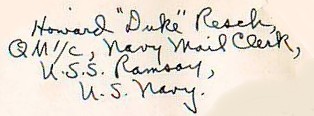 Howard "Duke" Resch,
QM1/c, Navy Mail Clerk,
U.S.S. Ramsay,
U.S. Navy.